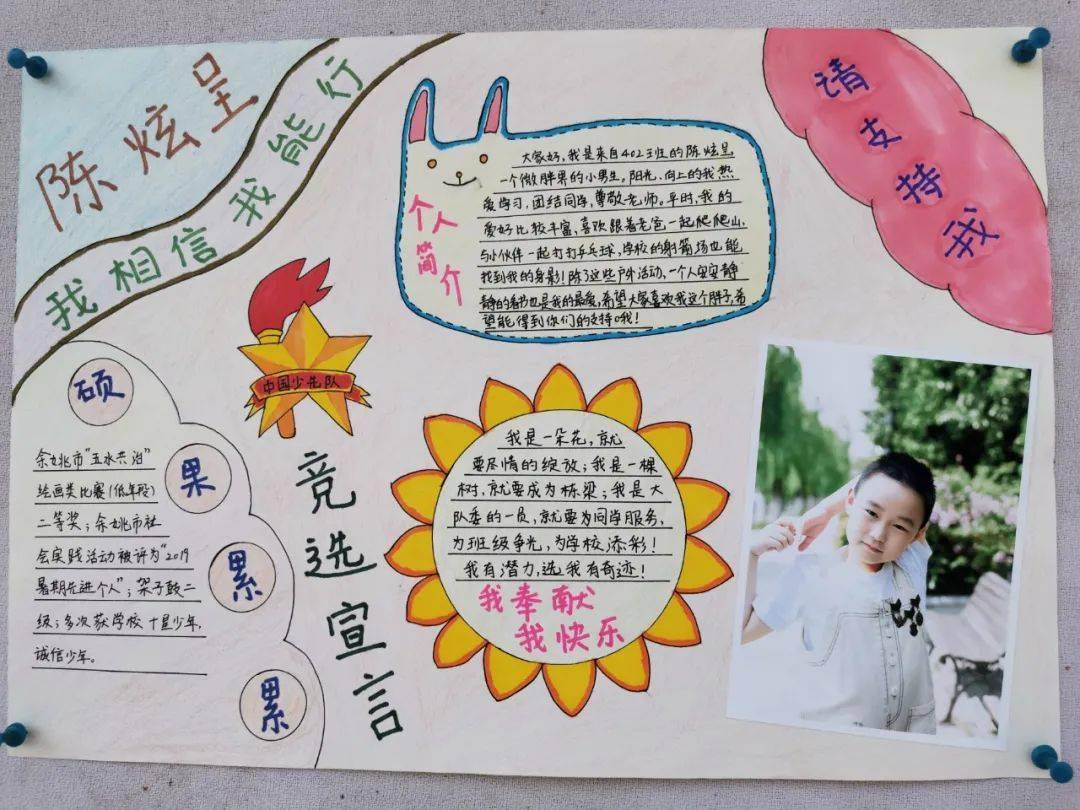 陈炫呈
我相信我能行
请支持我
个人简介
大家好,我是来自402班的陈炫呈
一个微胖界的小男生。阳光、向上的我热
爱学习,团结同学,尊敬老师。平时,我的
爱好比较丰富,喜欢跟着老爸一起爬爬山,
与小伙伴一起打打乒乓球,学校的射箭场也能
找到我的身影!除了这些户外活动,一个人安安静
静的看书也是我的最爱,希望大家喜欢我这个胖子,希
望能得到你们的支持哦!
中国少先队
硕果累累
余姚市“五水共治”
绘画类比赛(低年段)
二等奖;余姚市社
会实践活动被评为“2019
暑期先进个人”;架子鼓二
级;多次获学校十星少年,
诚信少年。
竞选宣言
我是一朵花,就
要尽情的绽放;我是一棵
树,就要成为栋梁;我是大
队委的一员,就要为同学服务,
为班级争光,为学校添彩!
我有潜力,选我有奇迹!
我奉献
我快乐